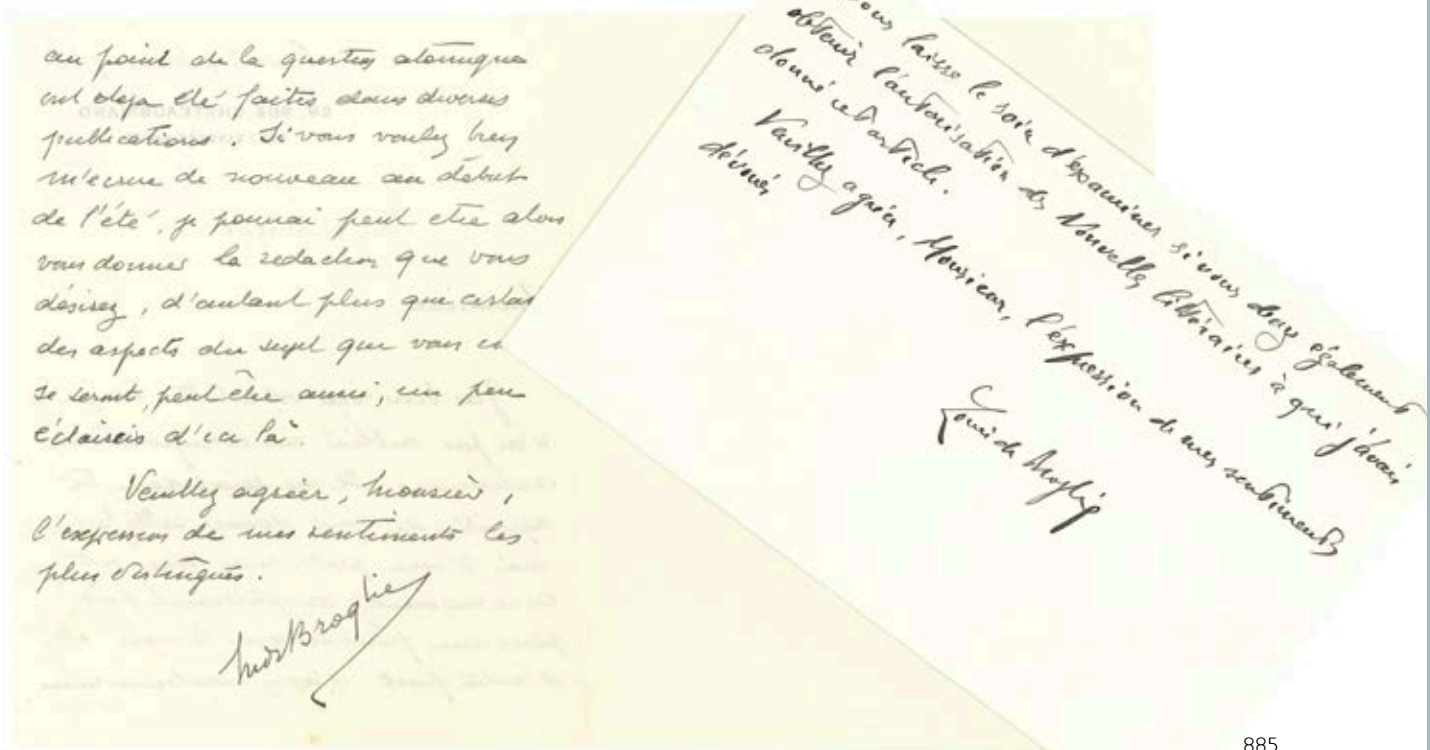 au point de la question atomique
ont deja été faites dans diverses
publications. Si vous voulez bien
m'écrire de nouveau au début
de l'été, je pourrai peut etre alors
vous donner la redaction que vous
désirez, d'autant plus que certai
des aspects du sujet que vous
se seront, peut être aussi, un peu
éclaircis d'ici là.
Veuillez agréer, Monsieur,
l'expression de mes sentiments les
plus distingués.
Broglie
vous laisse le soin d'examiner si vous devez également
obtenir l'autorisation des Nouvelles littéraires à qui j'avais
donné cet article.
Veuillez agréer, Monsieur, l'expression de mes sentiments
dévoués
Louis de Broglie
885